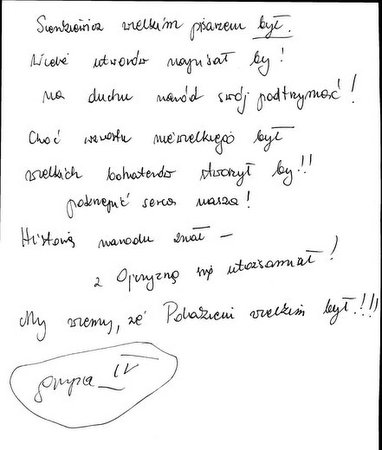 Sienkiewicz wielkim pisarzem był.
Wiele utworów napisał by!
na duchu naród swój podtrzymać!
Choć wzrostu niewielkiego był
wielkich bohaterów stworzył by!!!
pokrzepić serca nasze!
Historię narodu znał –
z Ojczyzną się utożsamiał!
My wiemy, że Polakiem wielkim był!!!!
grupa IV